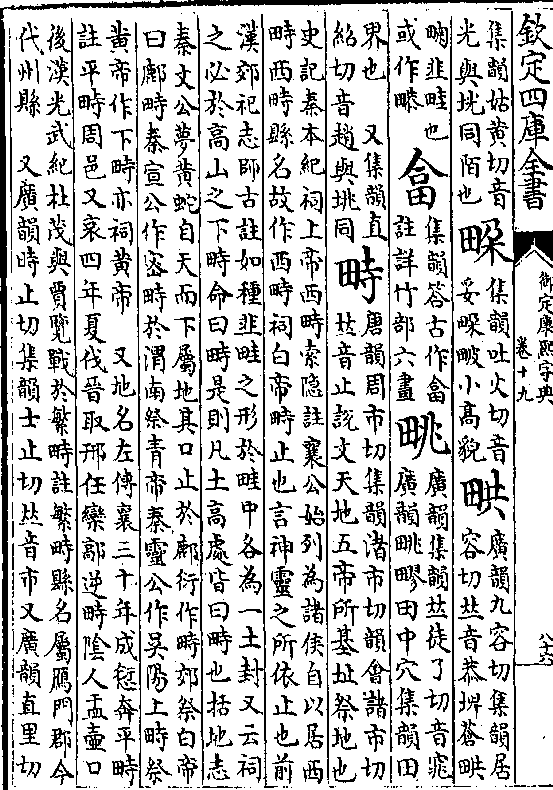 欽定四庫全書
御定康熙字典
卷十九
八十六
集韻姑黃切音
光與垙同陌也
集韻吐火切音
妥 小高貌
廣韻九容切集韻居
容切𠀤音恭埤蒼
畮韭畦也
或作
畣
集韻答古作畣
註詳竹部六畫
廣韻集韻𠀤徒了切音窕
廣韻 田中穴集韻田
界也 又集韻直
紹切音趙與垗同
畤
唐韻周市切集韻渚市切韻會諸市切
𠀤音止說文天地五帝所基址祭地也
史記秦本紀祠上帝西畤索隱註襄公始列為諸侯自以居西
畤西畤縣名故作西畤祠白帝畤止也言神靈之所依止也前
漢郊祀志師古註如種韭畦之形於畦中各為一土封又云祠
之必於高山之下畤命曰畤是則凡土高處皆曰畤也括地志
秦文公夢黃蛇自天而下屬地其口止於鄜衍作畤郊祭白帝
曰鄜畤秦宣公作密畤於渭南祭青帝秦靈公作吳陽上畤祭
黃帝作下畤亦祠黃帝 又地名左傳襄三十年成愆奔平畤
註平畤周邑又哀四年夏伐晉取邢任欒鄗逆畤陰人盂壺口
後漢光武紀杜茂與賈覽戰於繁畤註繁畤縣名屬鴈門郡今
代州縣 又廣韻時止切集韻士止切𠀤音市又廣韻直里切